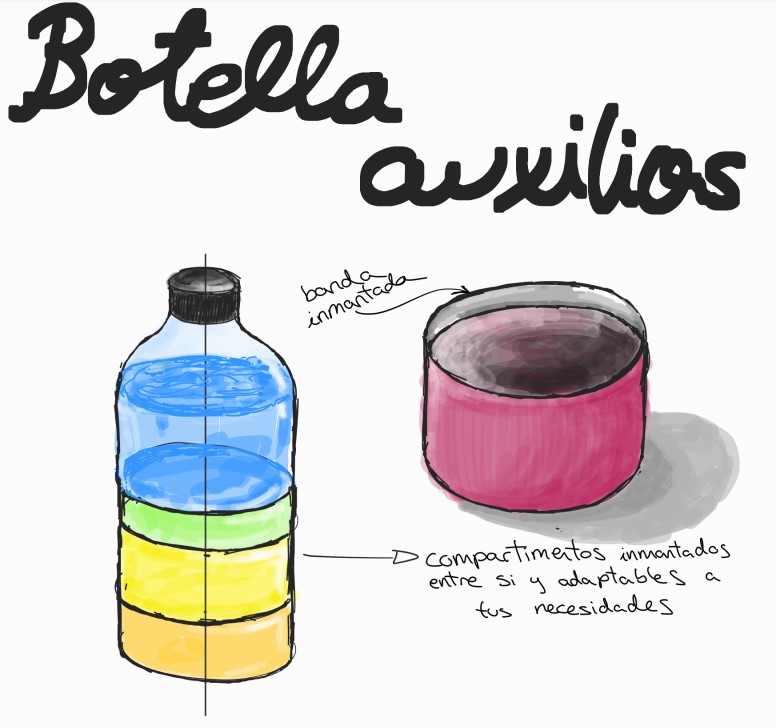 Botella
auxilios
banda
inmantada
compartimentos inmantados
entre si y adaptables a
tus necesidades